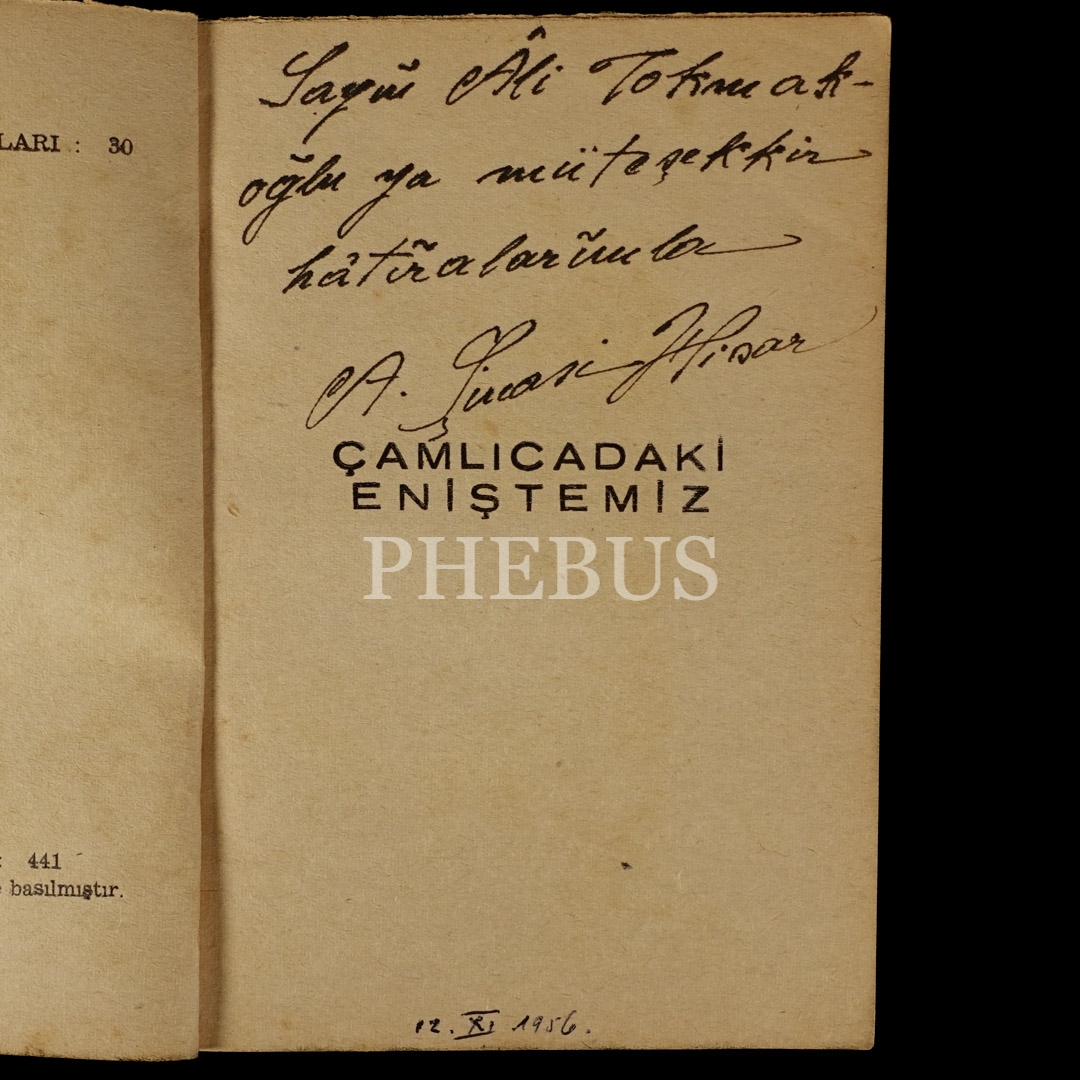 LARI : 30
: 441
basılmıştır.
Sayın Âli Tokmak-
oğlu ya müteşekkir
hâtıralarımla
A. Şinasi Hisar
ÇAMLICADAKİ
ENİŞTEMİZ
PHEBUS
12. XI 1956.